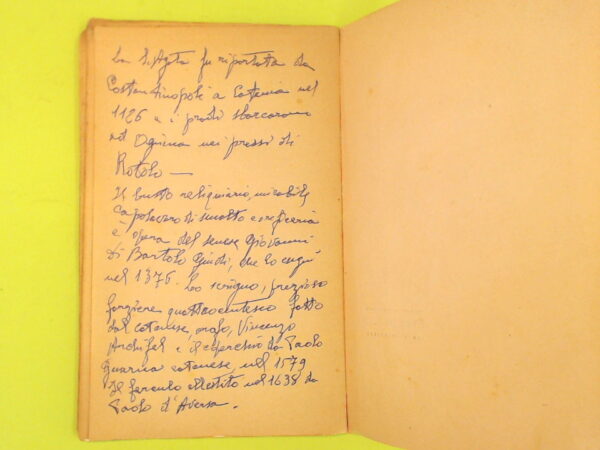 La S. Agata fu riportata da
Costantinopoli a Catania nel
1126 e i prodi sbarcarono
ad Ognina nei pressi di
Rotolo —
Il busto reliquiario, mirabile
capolavoro di smalto e oreficeria
è opera del senese Giovanni
Di Bartolo, che lo eseguì
nel 1376. Lo scrigno, prezioso
forziere quattrocentesco fatto
dal catanese, orafo, Vincenzo
Archifel e il coperchio da Paolo
Guarna catanese, nel 1579
Il fercolo allestito nel 1638 da
Paolo d'Aversa.